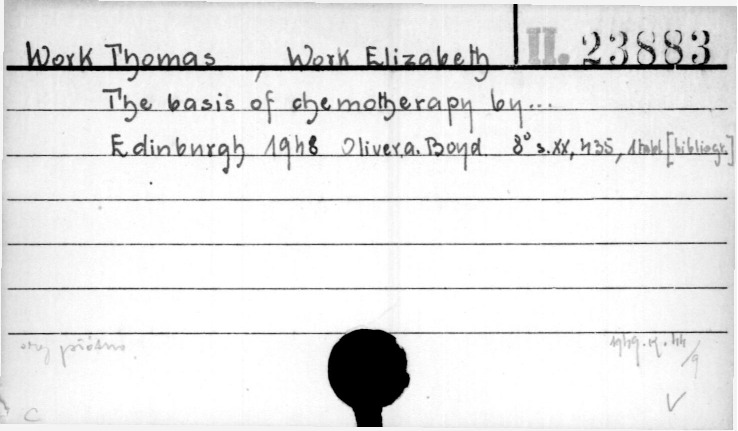 Work Thomas, Work Elizabeth II. 23883
The basis of chemotherapy by...
Edinburgh 1948 Oliver a. Boyd 8° s. XX, 435, 1 tabl. [bibliogr.]
płótno
V
C